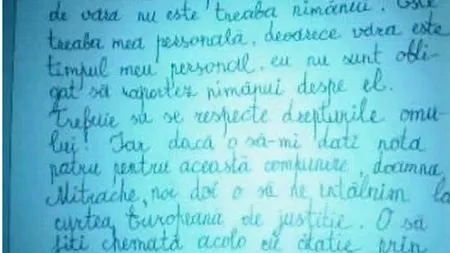 de vara nu este treaba nimănui. Este
treaba mea personală, deoarece vara este
timpul meu personal, eu nu sunt obli-
gat să raportez nimănui despe el.
Trebuie să se respecte drepturile omu-
lui! Iar dacă o să-mi dați nota
patru pentru această compunere, doamna
Mitrache, noi doi o să ne întâlnim la
curtea Europeană de justiție. O să
fiți chemată acolo cu citație prin